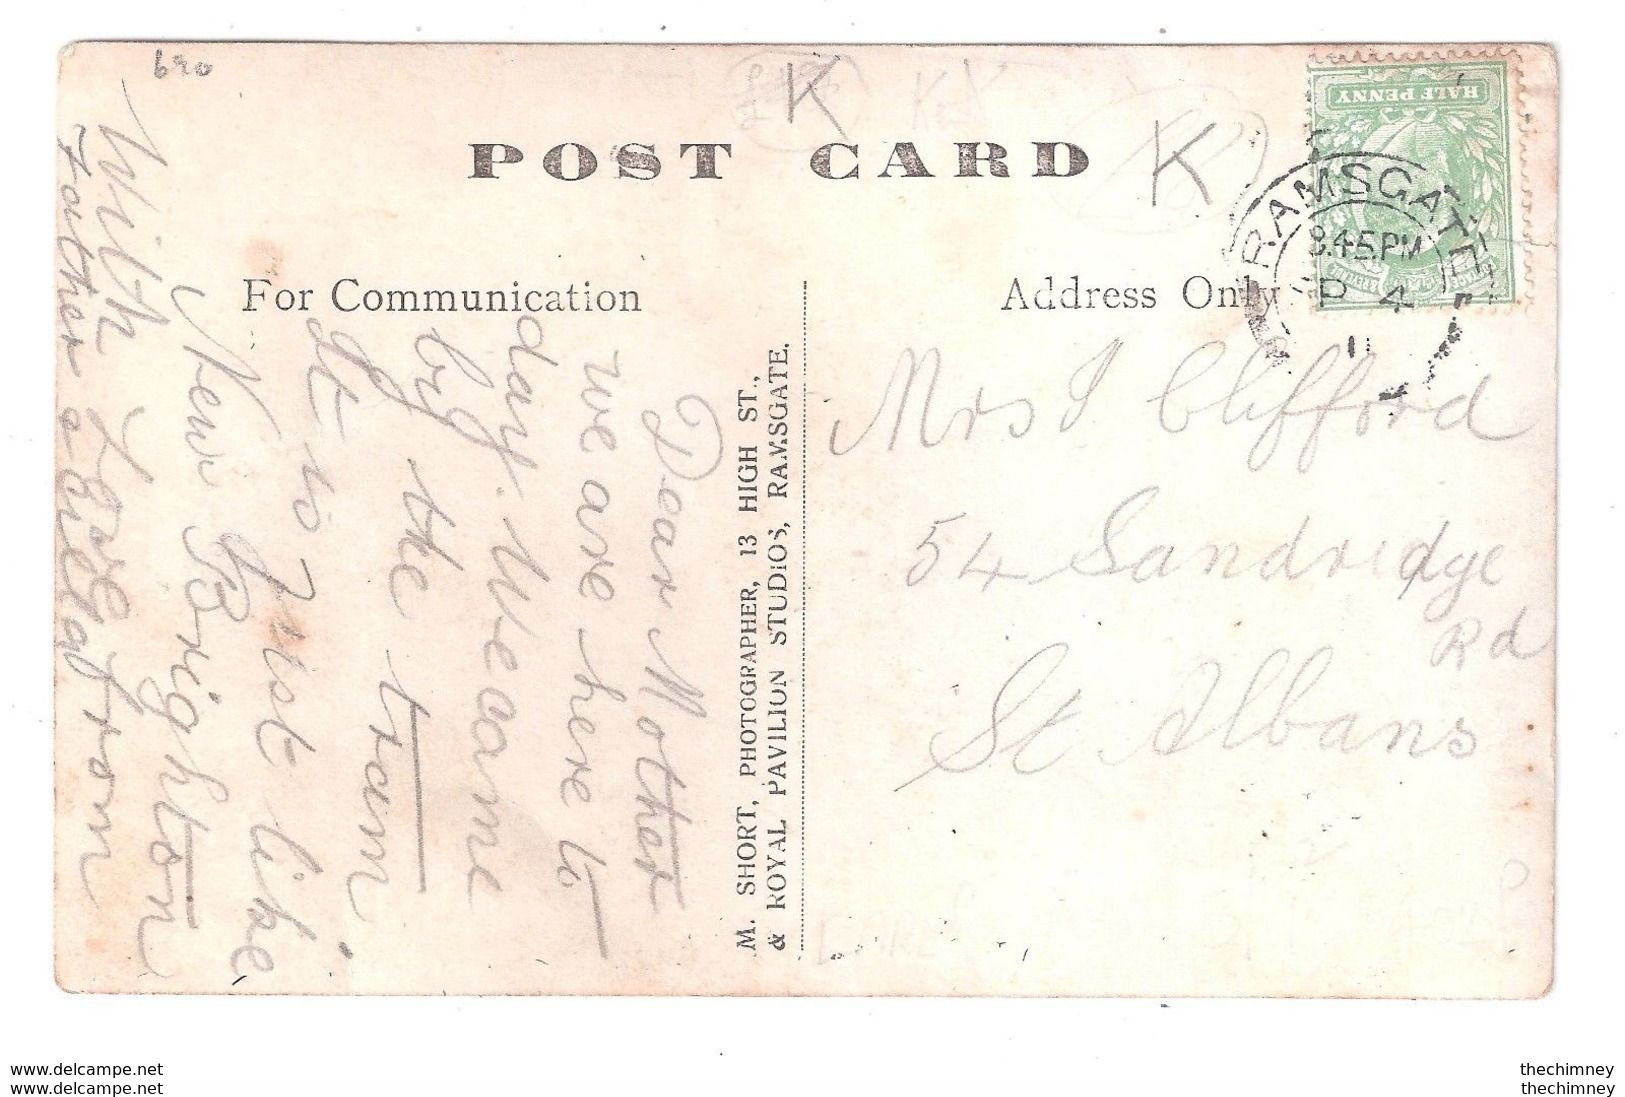 690
K
K
POST CARD
For Communication
Address Only
HALF PENNY
RAMSGATE
8.45.PM
P 4
11
Dear Mother
we are here to
day. We came
by the tram
It is just like
New Brighton
With Love
Father &
M. SHORT, PHOTOGRAPHER, 13 HIGH ST.,
& ROYAL PAVILION STUDIOS, RAMSGATE.
Mrs J Clifford
54 Sandridge
Rd
St Albans
www.delcampe.net
www.delcampe.net
thechimney
thechimney